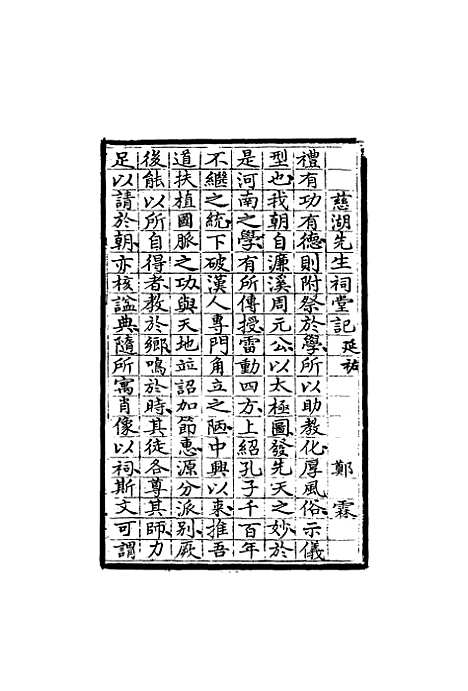 慈湖先生祠堂記延祐 鄭霖
禮有功有德則附祭於學所以助教化厚風俗示儀
型也我朝自濂溪周元公以太極圖發先天之妙於
是河南之學有所傳授雷動四方上紹孔子千百年
不繼之統下破漢人專門角立之陋中興以來推吾
道扶植國脈之功與天地並詔加節惠源分派别厥
後能以所自得者教於鄉鳴於時其徒各尊其師力
足以請於朝亦核諡典隨所寓肖像以祠斯文可謂